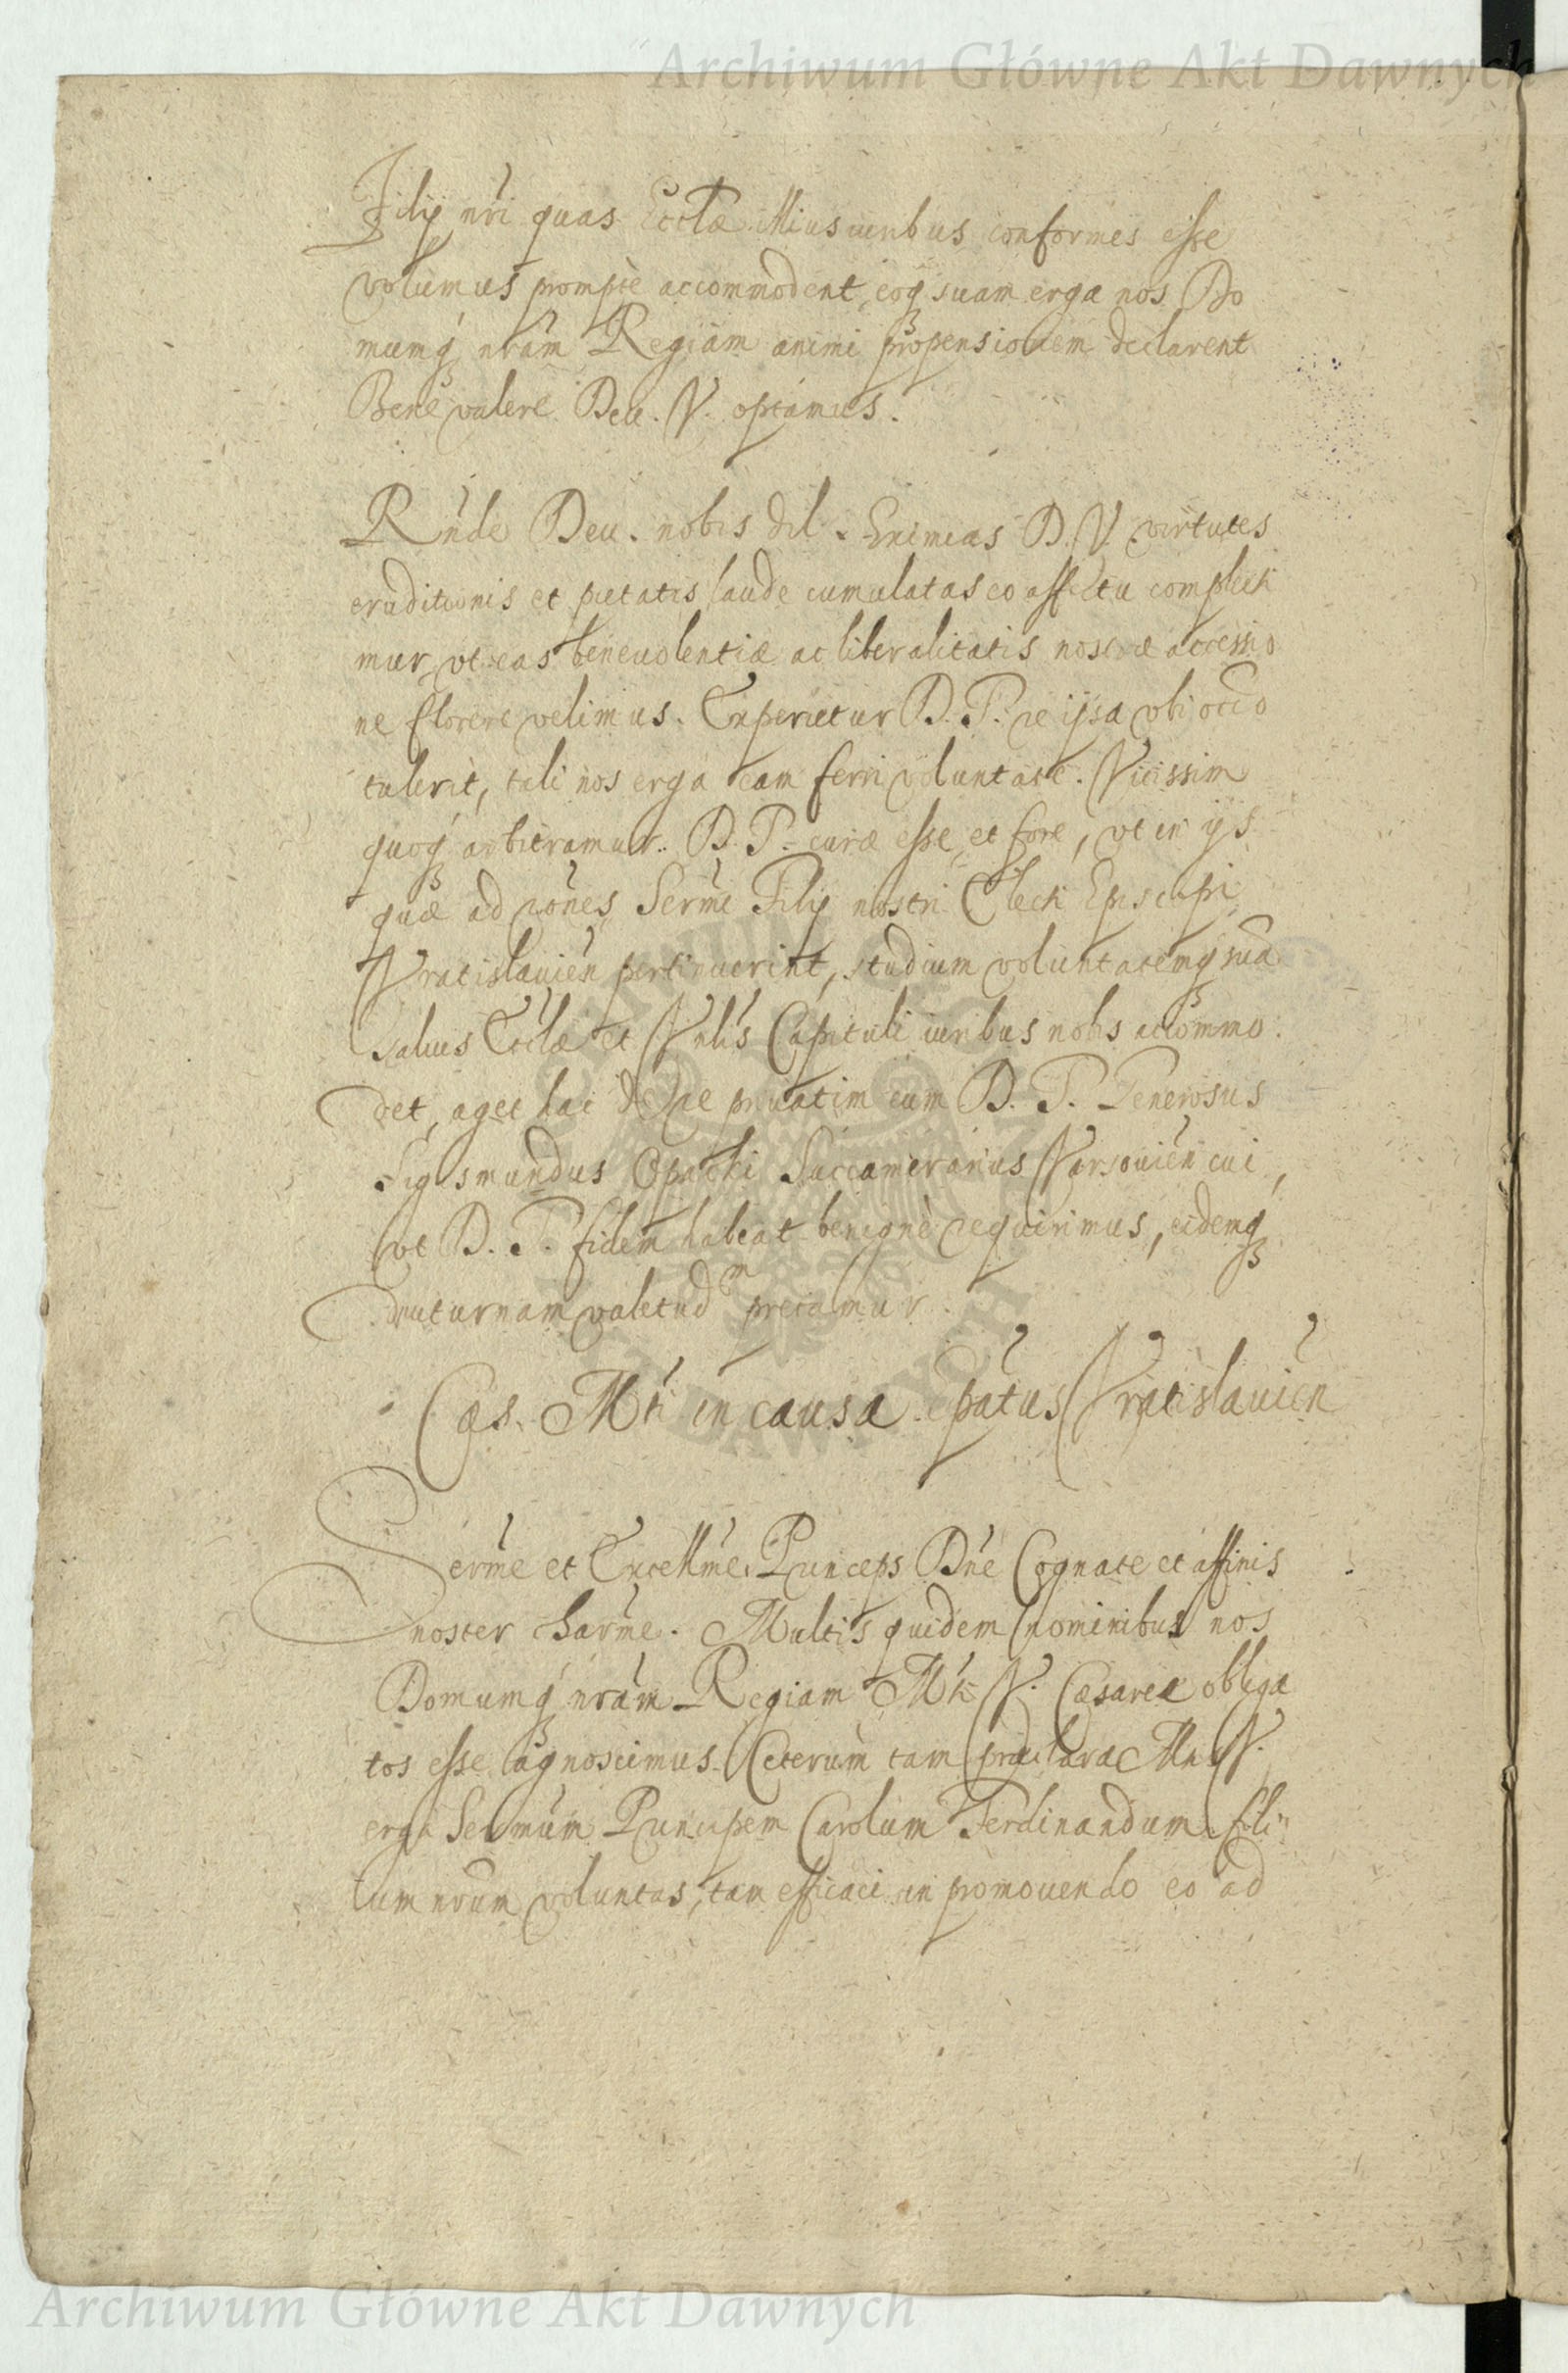 Archiwum Główne Akt Dawnych
Filij nri quas Ecclae illius iuribus conformes esse
volumus prompte accommodent, eoq suam erga nos Do
mumq nram Regiam animi propensionem declarent
Bene valere Deu. V. optamus.
Rnde Deu. nobis dil. Eximias D. V. virtutes
eruditionis et pietatis laude cumulatas eo affectu complecti
mur, vt eas beneuolentiae ac liberalitatis nostrae accessio
ne florere velimus. Experietur D. T. re ipsa vbi occo
tulerit, tali nos erga eam ferri voluntate. Vicissim
quoq arbitramur D. T. curae esse, et fore, vt in ijs
quae ad rones Serme Filij nostri Electi Episcopi
Vratislauien pertinuerint, studium voluntatemq sua
saluis Ecclae et Vnlis Capituli iuribus nobis accommo
det, aget hac de re priuatim cum D. T. Generosus
Sigismundus Opacki Succamerarius Varsouien cui,
vt D. T. fidem habeat benigne requirimus, eidemq
diuturnam valetudm precamur.
Caes. Mti in causa epatus Vratislauien
Serme et Excellme Princeps Dne Cognate et affinis
noster charme. Multis quidem nominibus nos
Domumq nram Regiam Mti V. Caesareae obliga
tos esse agnoscimus. Ceterum tam praeclara Mtis V.
erga Sermum Principem Carolum Ferdinandum fili
um nrum voluntas, tam efficaci in promouendo eo ad
Archiwum Główne Akt Dawnych